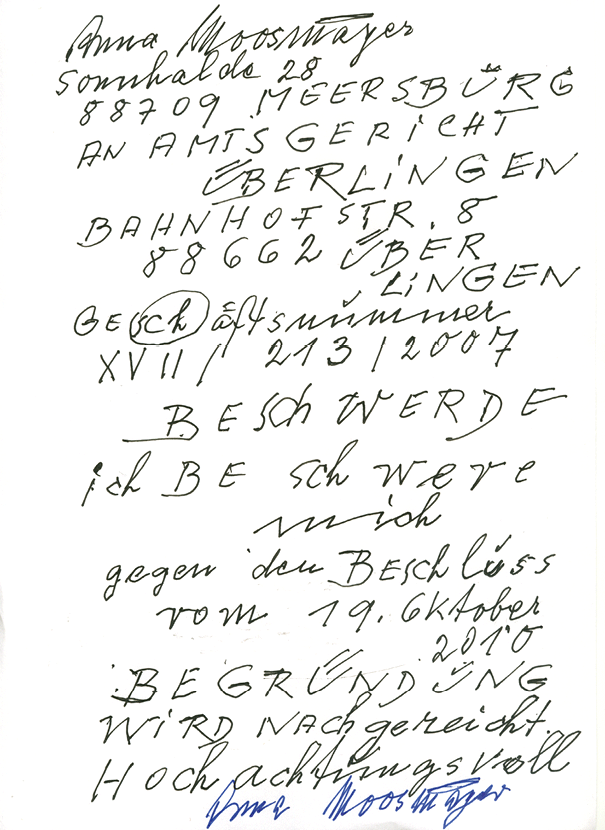 Anna Moosmayer
Sonnhalde 28
88709 MEERSBURG
AN AMTSGERICHT
ÜBERLINGEN
BAHNHOFSTR. 8
88662 ÜBER
LINGEN
GEschäftsnummer
XVII / 213 / 2007
BEschWERDE
ich BEschwere
mich
gegen den BEschluss
vom 19. Oktober
2010
BEGRÜNDUNG
WIRD NAchgereicht.
Hochachtungsvoll
Anna Moosmayer